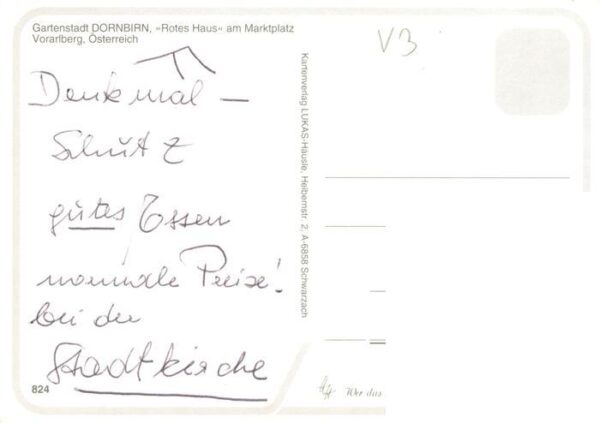 Gartenstadt DORNBIRN, »Rotes Haus« am Marktplatz
Vorarlberg, Österreich
V3
Denkmal –
Schutz
gutes Essen
normale Preise!
bei der
Stadtkirche
824
Kartenverlag LUKAS-Häusle, Heibernstr. 2, A-6858 Schwarzach
Wer das